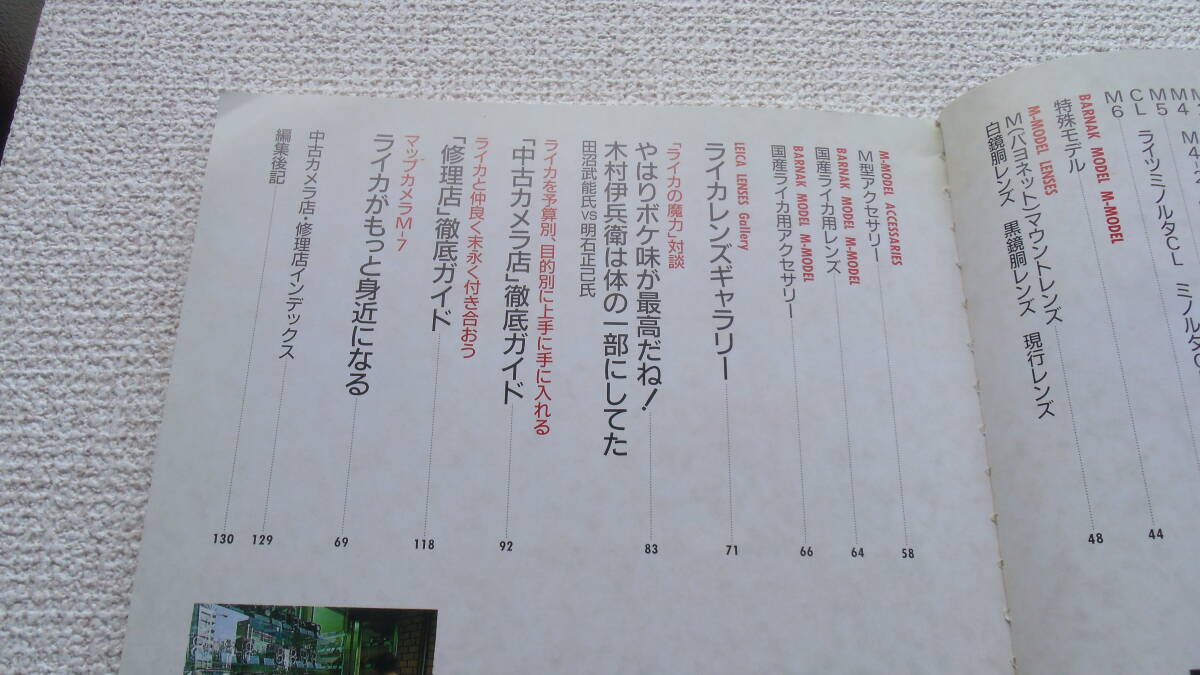 M4 M4-2
M5
CL ライツミノルタCL
M6
44
BARNAK MODEL M-MODEL
特殊モデル
48
M-MODEL LENSES
M(バヨネット)マウントレンズ
白鏡胴レンズ 黒鏡胴レンズ 現行レンズ
M-MODEL ACCESSARIES
M型アクセサリー
58
BARNAK MODEL M-MODEL
国産ライカ用レンズ
64
BARNAK MODEL M-MODEL
国産ライカ用アクセサリー
66
LEICA LENSES Gallery
ライカレンズギャラリー
71
「ライカの魔力」対談
やはりボケ味が最高だね!
83
木村伊兵衛は体の一部にしてた
田沼武能氏vs明石正巳氏
ライカを予算別、目的別に上手に手に入れる
「中古カメラ店」徹底ガイド
92
ライカと仲良く末永く付き合おう
「修理店」徹底ガイド
118
マップカメラM-7
ライカがもっと身近になる
69
中古カメラ店・修理店インデックス
129
編集後記
130